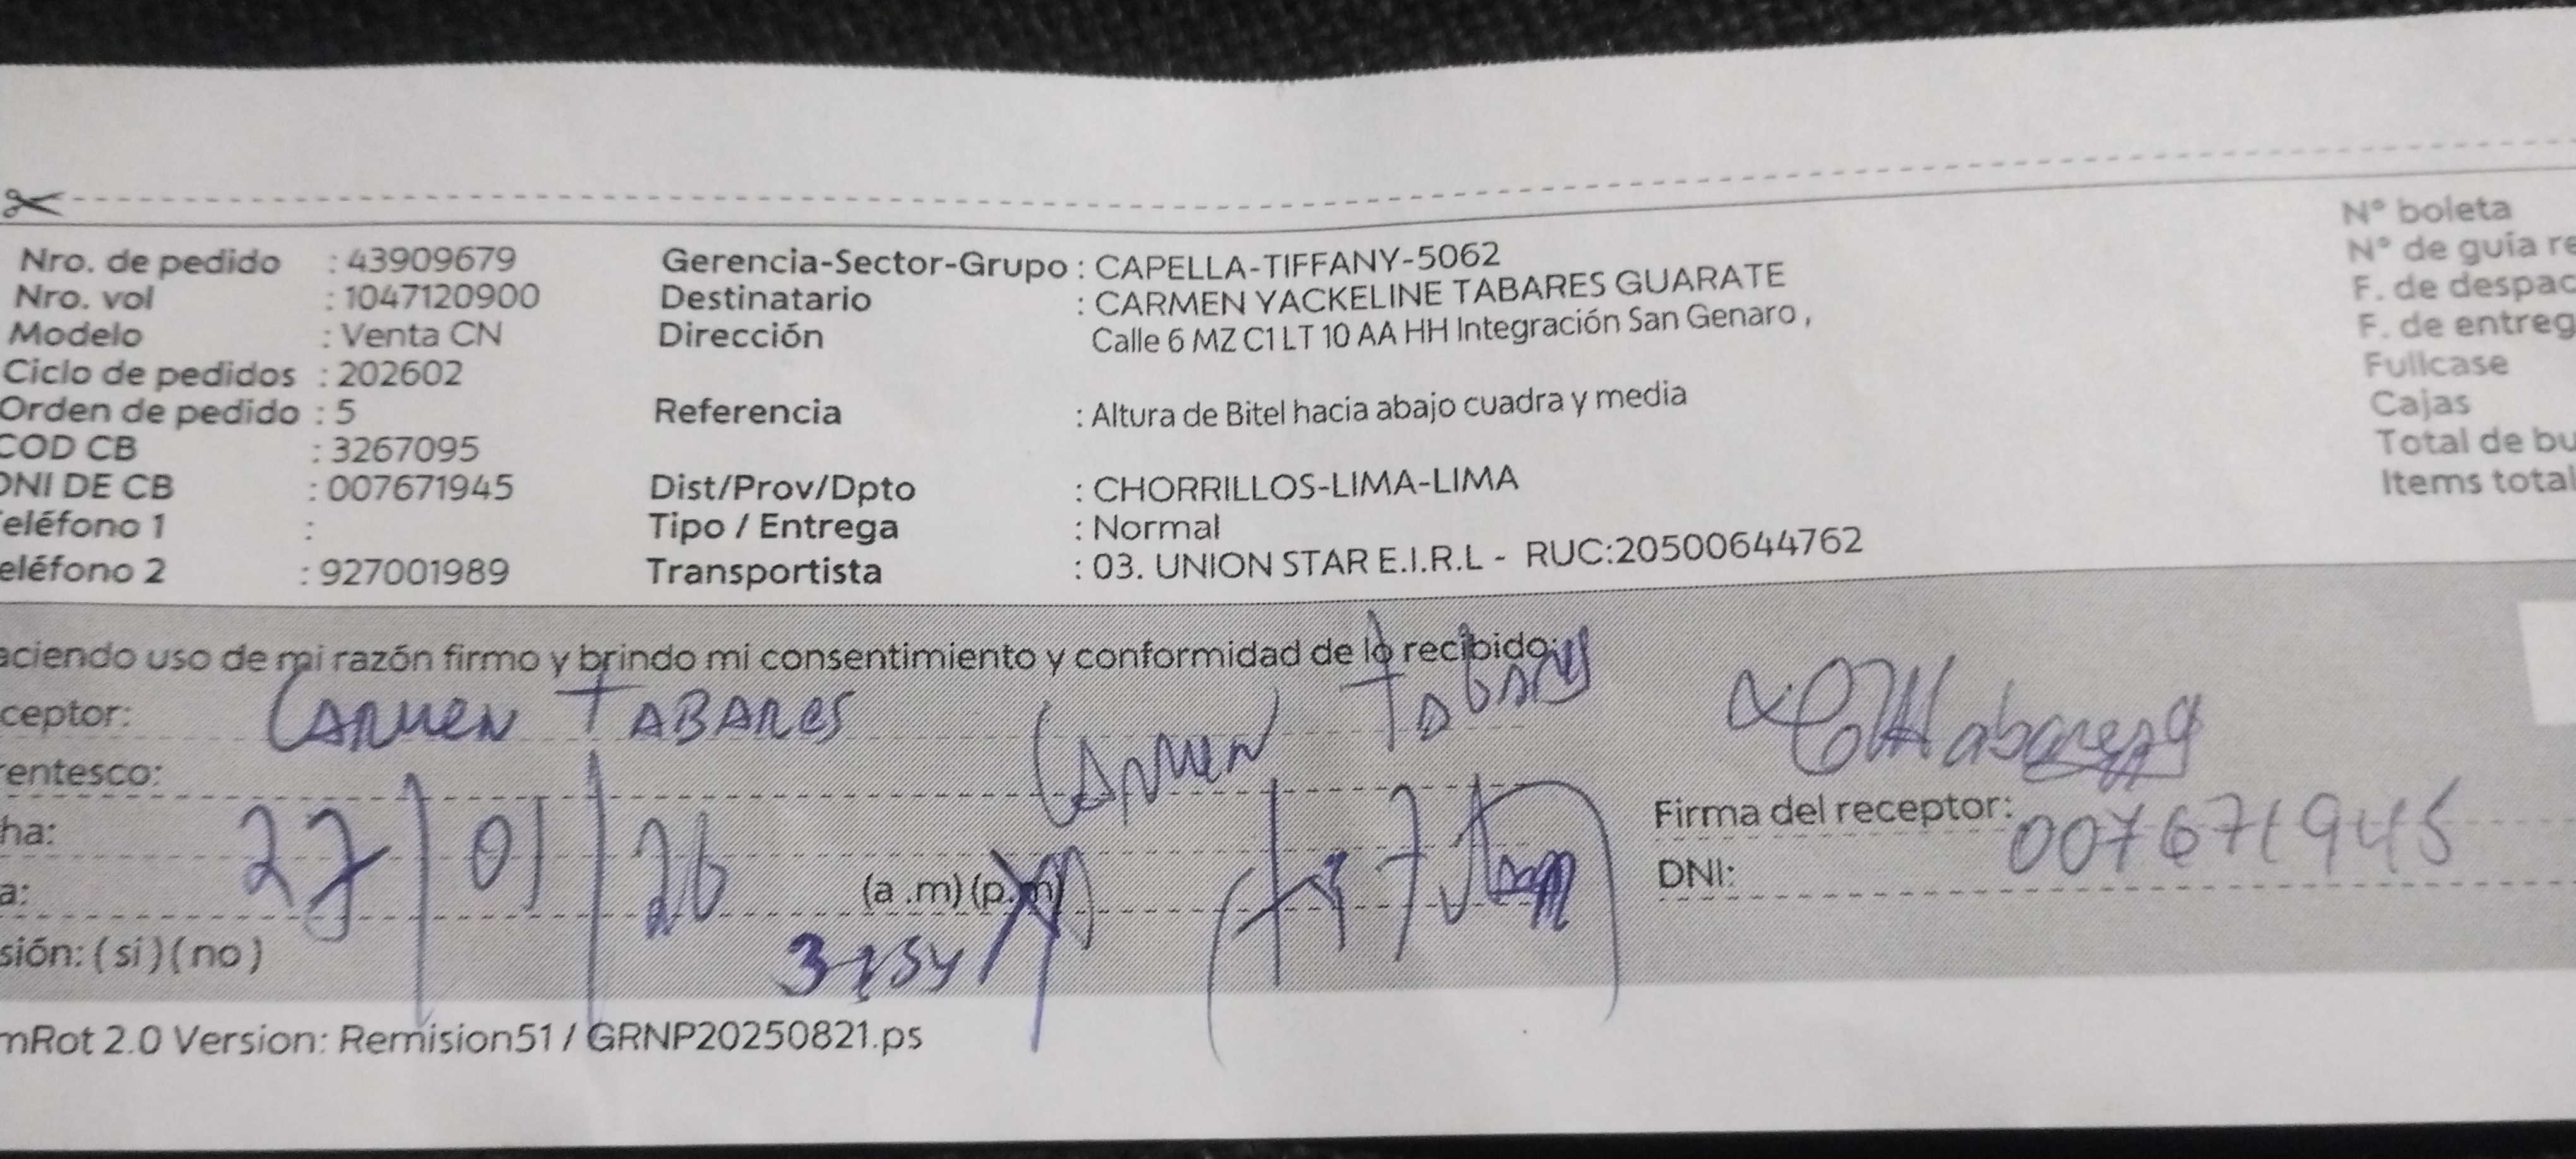 Nro. de pedido : 43909679 Gerencia-Sector-Grupo : CAPELLA-TIFFANY-5062 N° boleta
Nro. vol : 1047120900 Destinatario : CARMEN YACKELINE TABARES GUARATE N° de guía re
Modelo : Venta CN Dirección Calle 6 MZ C1 LT 10 AA HH Integración San Genaro , F. de despac
Ciclo de pedidos : 202602 F. de entreg
Orden de pedido : 5 Referencia : Altura de Bitel hacia abajo cuadra y media Fullcase
COD CB : 3267095 Cajas
DNI DE CB : 007671945 Dist/Prov/Dpto : CHORRILLOS-LIMA-LIMA Total de bu
eléfono 1 : Tipo / Entrega : Normal Items total
eléfono 2 : 927001989 Transportista : 03. UNION STAR E.I.R.L - RUC:20500644762
aciendo uso de mi razón firmo y brindo mi consentimiento y conformidad de lo recibido:
ceptor: CARMEN TABARES CARMEN TABARES
rentesco:
ha: 27/01/26 Firma del receptor:
a: (a .m) (p.m) DNI: 007671945
sión: ( si ) ( no )
mRot 2.0 Version: Remision51 / GRNP20250821.ps